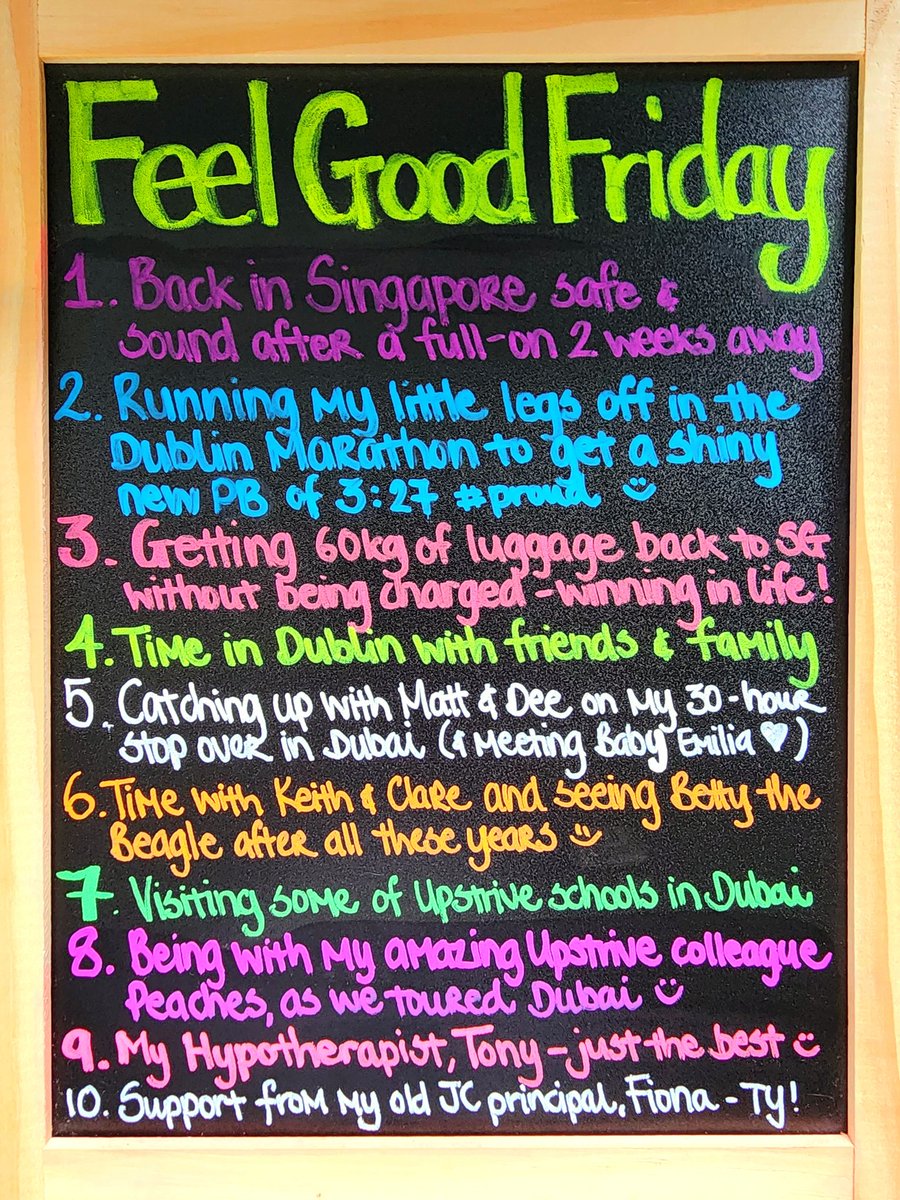 Feel Good Friday
1. Back in Singapore safe &
sound after a full-on 2 weeks away
2. Running my little legs off in the
Dublin Marathon to get a shiny
new PB of 3:27 #proud
3. Getting 60kg of luggage back to SG
without being charged - winning in life!
4. Time in Dublin with friends & family
5. Catching up with Matt & Dee on my 30-hour
stop over in Dubai (& meeting Baby Emilia ♥)
6. Time with Keith & Clare and seeing Betty the
Beagle after all these years
7. Visiting some of Upstrive schools in Dubai
8. Being with my amazing Upstrive colleague
Peaches, as we toured Dubai
9. My Hypotherapist, Tony - just the best
10. Support from my old JC principal, Fiona - TY!